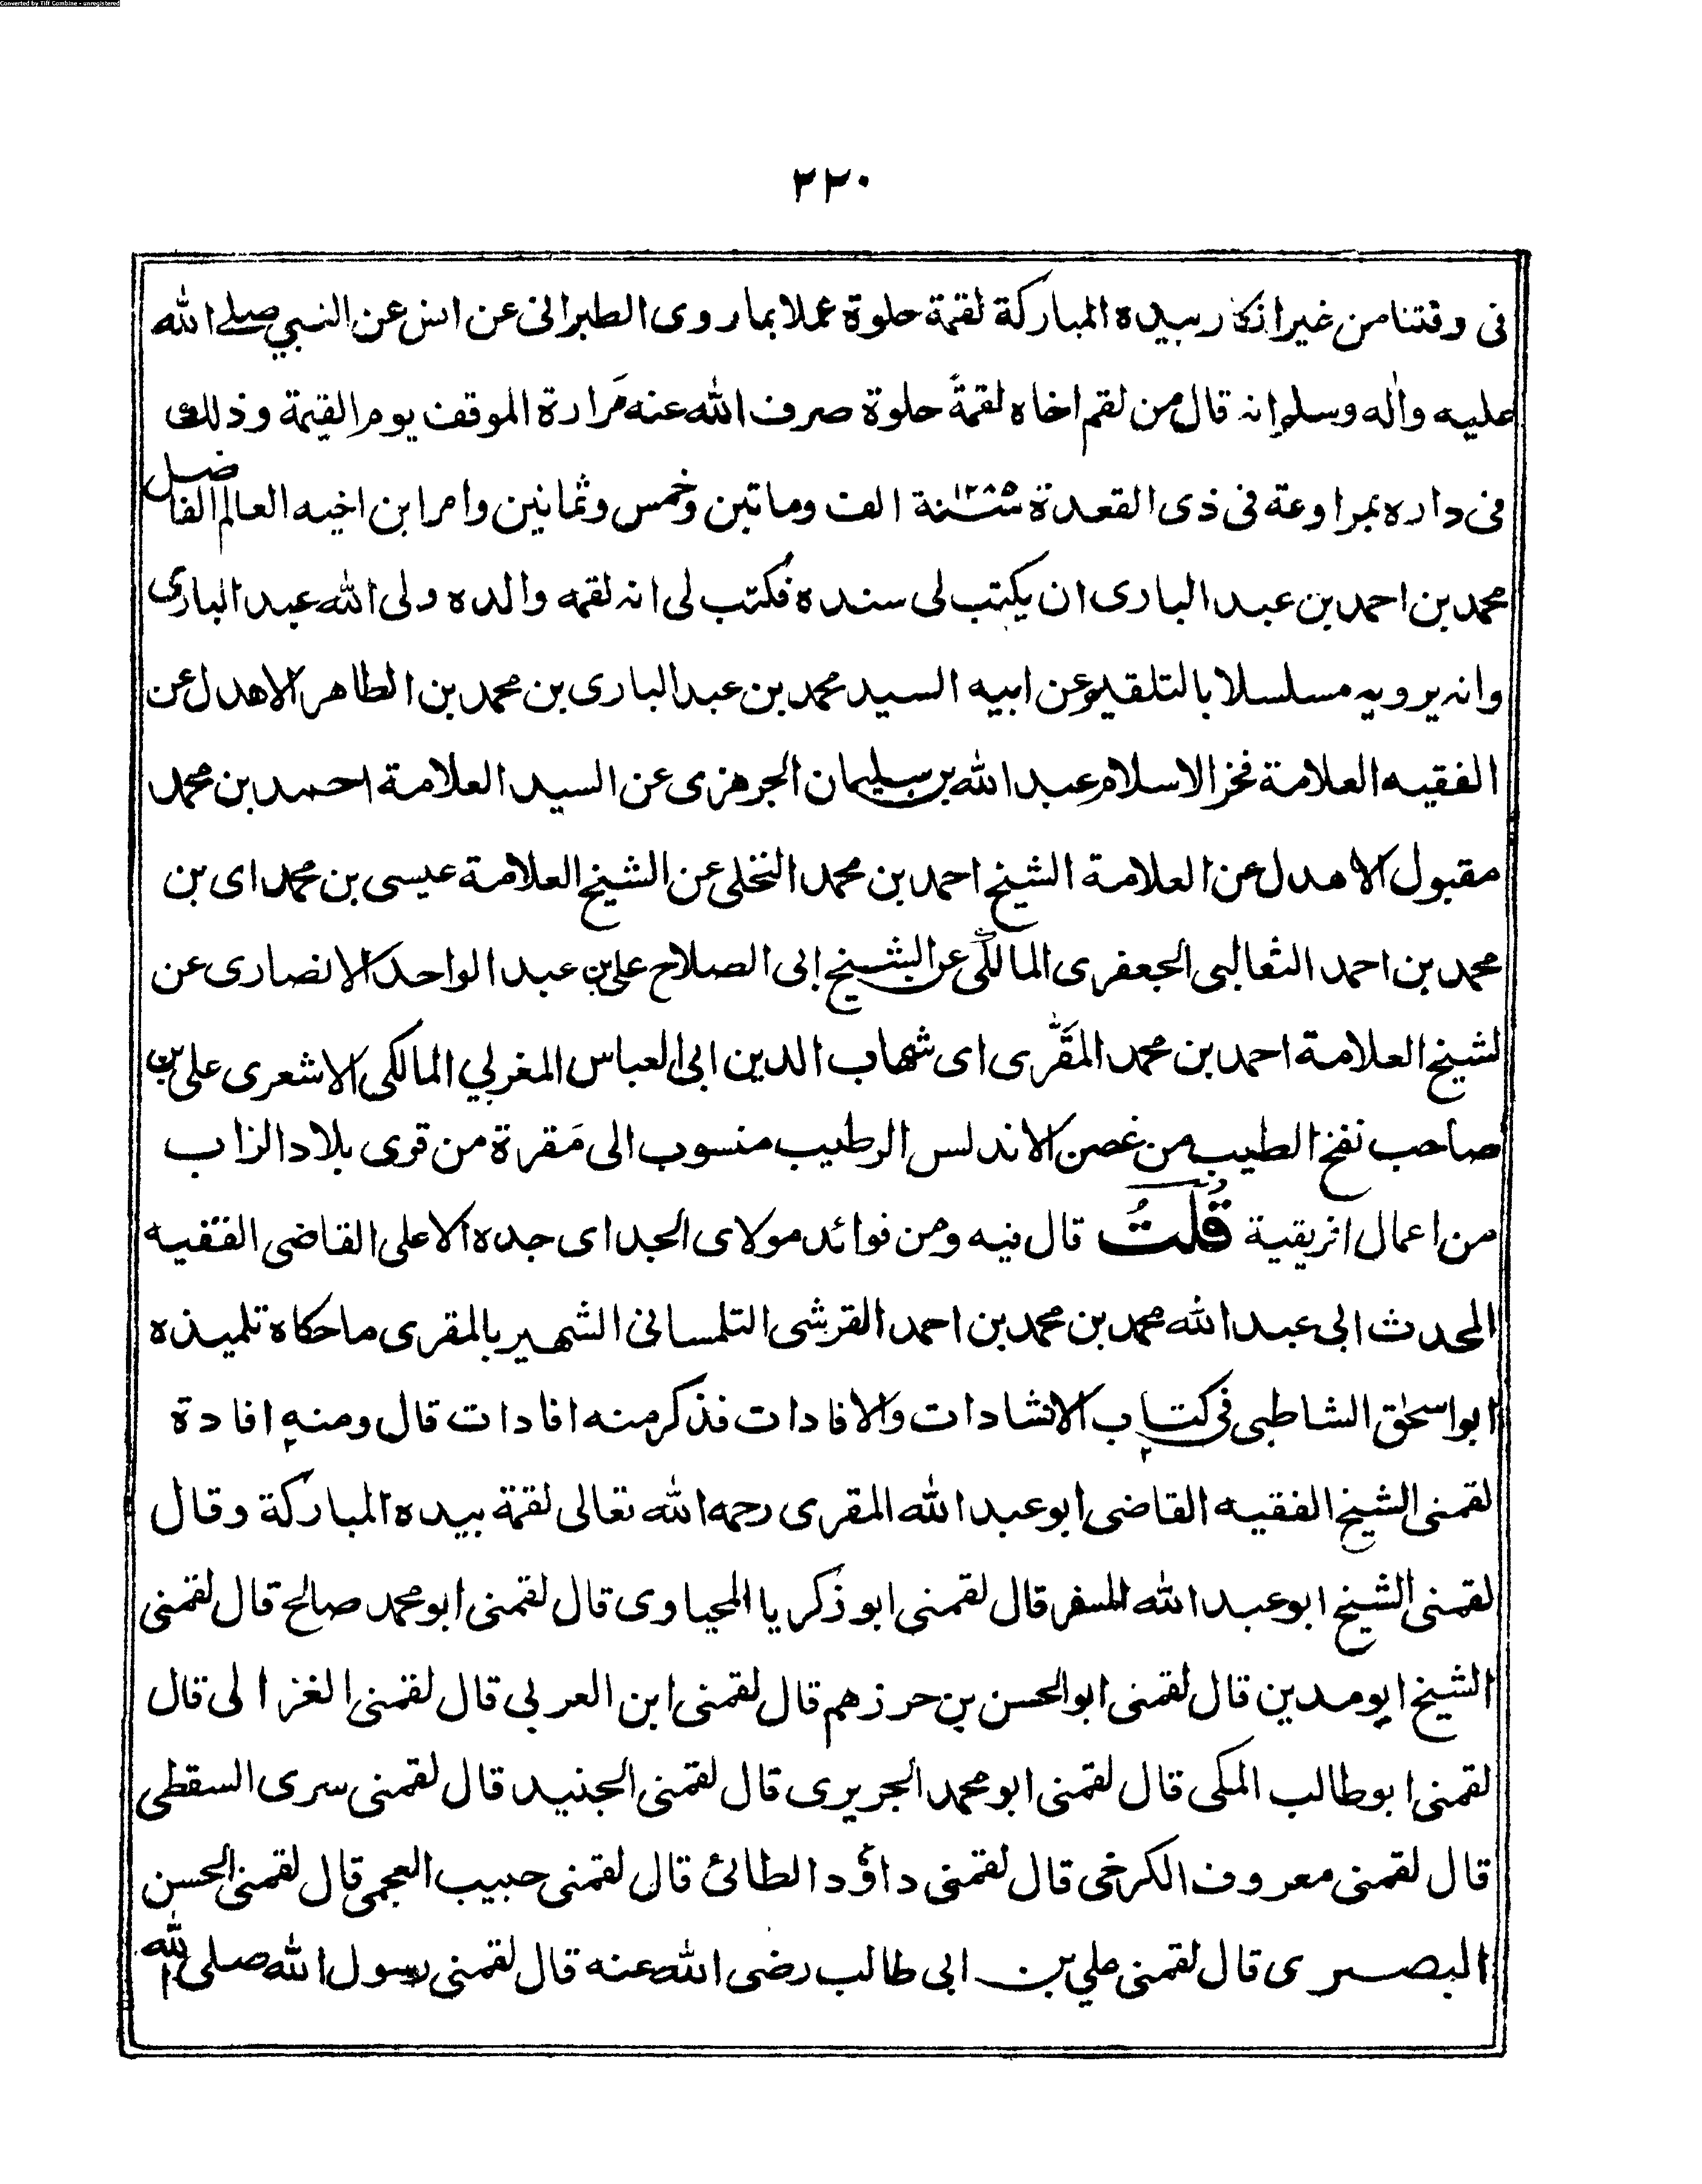 Converted by Tiff Combine - unregistered
٢٢٠
فى وقتنا من غير انكار بيده المباركة لقمة حلوة عملا بما روى الطبرانى عن انس عن النبي صلے الله
عليه واٰله وسلم انه قال من لقم اخاه لقمةً حلوة صرف الله عنه مَرارة الموقف يوم القيمة وذلك
فى داره بمراوعة فى ذى القعدة سنة ١٢٨٥ الف وماتين وخمس وثمانين وامر ابن اخيه العالم الفاضل
محمد بن احمد بن عبد البارى ان يكتب لى سنده فكتب لى انه لقمه والده ولى الله عبد البارى
وانه يرويه مسلسلا بالتلقيم عن ابيه السيد محمد بن عبد البارى بن محمد بن الطاهر الاهدل عن
الفقيه العلامة فخر الاسلام عبد الله بن سليمان الجرهزى عن السيد العلامة احمد بن محمد
مقبول الاهدل عن العلامة الشيخ احمد بن محمد النخلى عن الشيخ العلامة عيسى بن محمد اى بن
محمد بن احمد الثعالبى الجعفرى المالكى عن الشيخ ابى الصلاح على بن عبد الواحد الانصارى عن
لشيخ العلامة احمد بن محمد المَقَّرى اى شهاب الدين ابى العباس المغربي المالكى الاشعرى على بن
صاحب نفخ الطيب من غصن الاندلس الرطيب منسوب الى مَقرة من قرى بلاد الزاب
من اعمال افريقية قُلتُ قال فيه ومن فوائد مولاى الجد اى جده الاعلى القاضى الفقيه
المحدث ابى عبد الله محمد بن محمد بن احمد القرشى التلمسانى الشهير بالمقرى ما حكاه تلميذه
ابو اسحٰق الشاطبى فى كتاب الانشادات والافادات فذكر منه افادات قال ومنه افادة
لقمنى الشيخ الفقيه القاضى ابو عبد الله المقرى رحمه الله تعالى لقمة بيده المباركة وقال
لقمنى الشيخ ابو عبد الله المسفر قال لقمنى ابو زكريا المحياوى قال لقمنى ابو محمد صالح قال لقمنى
الشيخ ابو مدين قال لقمنى ابو الحسن بن حرزهم قال لقمنى ابن العربى قال لقمنى الغزالى قال
لقمنى ابو طالب المكى قال لقمنى ابو محمد الجريرى قال لقمنى الجنيد قال لقمنى سرى السقطى
قال لقمنى معروف الكرخى قال لقمنى داؤد الطائى قال لقمنى حبيب العجمى قال لقمنى الحسن
البصرى قال لقمنى علي بن ابى طالب رضى الله عنه قال لقمنى رسول الله صلى الله